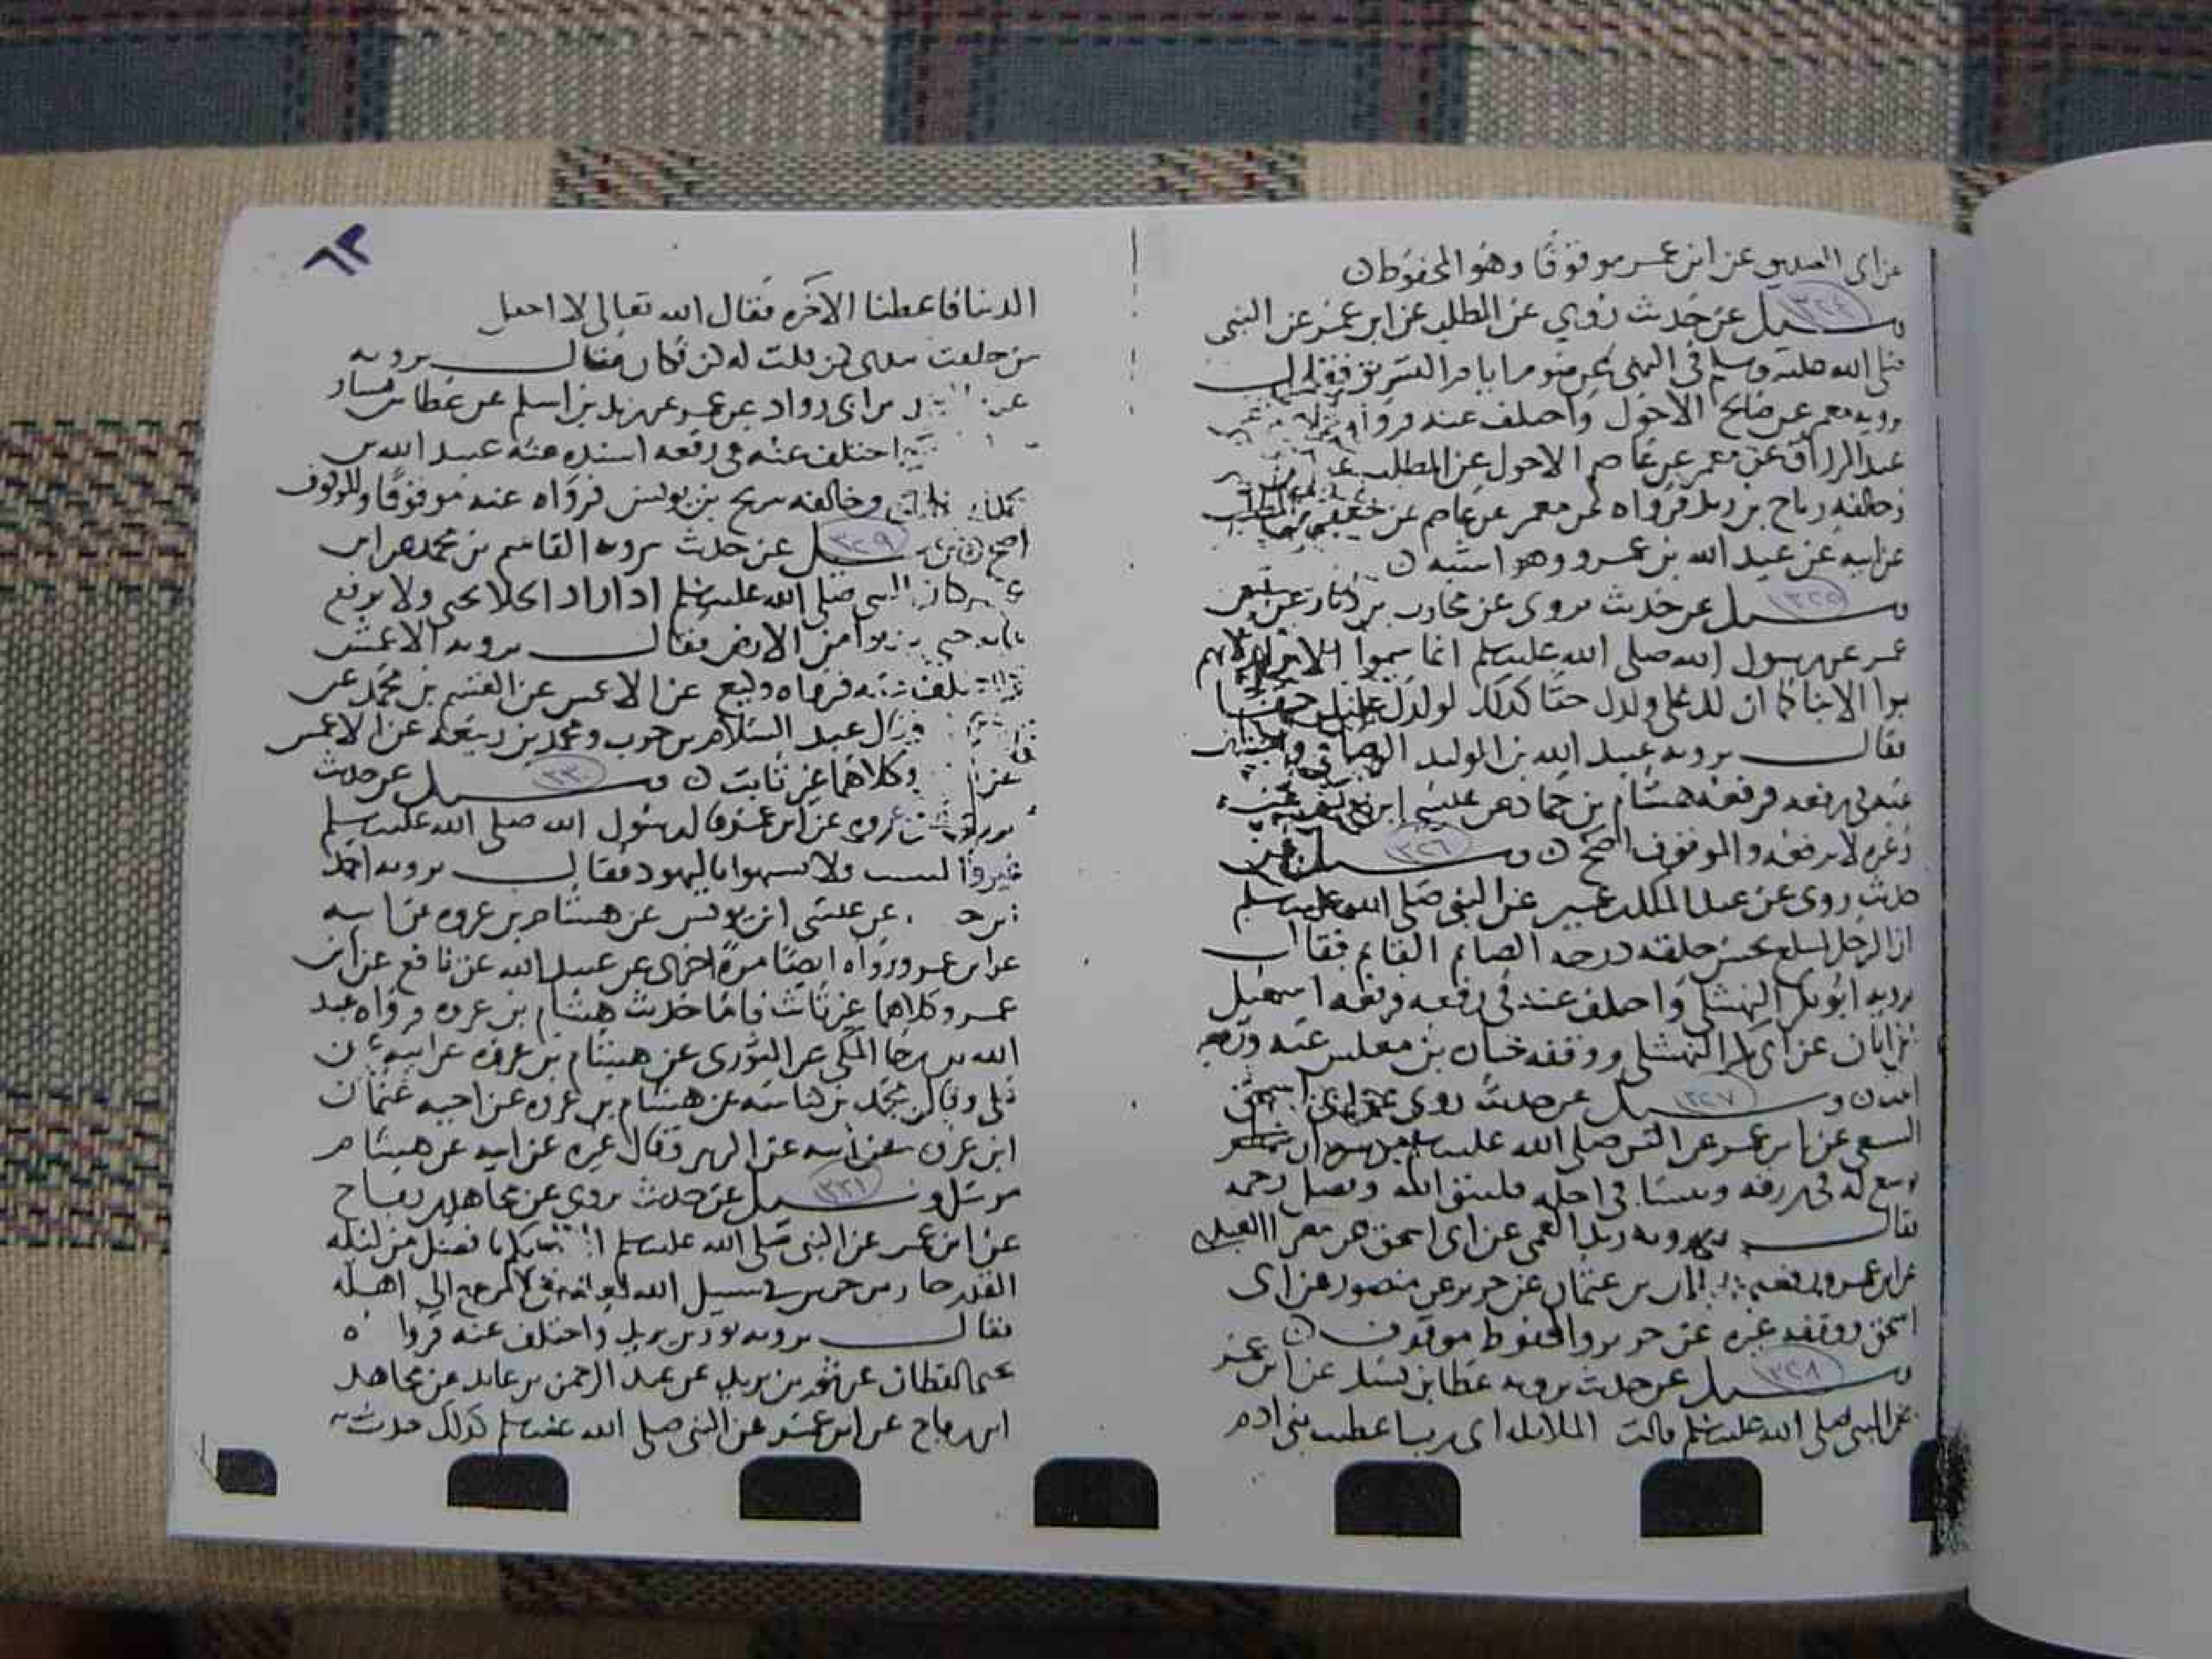 عن ابى الصديق عن ابن عمر موقوفا وهو المحفوظ
٣٢٤
وسيل عن حديث روي عن المطلب عن ابن عمر عن النبى
صلى الله عليه وسلم فى النهى عن صوم ايام التشريق فقال
يرويه معمر عن عاصم الاحول واختلف عنه فرواه
عبد الرزاق عن معمر عن عاصم الاحول عن المطلب
وخالفه رباح بن زيد فرواه عن معمر عن عاصم عن
عن ابيه عن عبد الله بن عمرو وهو اشبه
٣٢٥
وسيل عن حديث يروى عن محارب بن دثار عن ابن
عمر عن رسول الله صلى الله عليه وسلم انما سموا الابرار لانهم
بروا الابنا كما ان لوالدك حقا كذلك لولدك عليك حقا
فقال يرويه عبيد الله بن الوليد الوصافى واختلف
عنه فى رفعه فرفعه هشام بن عمار عن عيسى ابن يونس عنه
وغيره لا يرفعه والموقوف اصح وسيل عن
٣٢٦
حديث روى عن عبد الملك بن عمير عن النبى صلى الله عليه وسلم
ان الرجل المسلم بحسن خلقه درجه الصايم القايم فقال
يرويه ابو بكر النهشلى واختلف عنه فى رفعه فرفعه اسمعيل
بن ابان عن ابى بكر النهشلى ووقفه جبان بن مغلس عنه ورفعه
وسيل عن حديث روى عن ابى اسحق
٣٢٧
السبيعى عن ابن عمر عن النبى صلى الله عليه وسلم من سره ان
يوسع له فى رزقه وينسا فى اجله فليتق الله وليصل رحمه
فقال يرويه زيد العمى عن ابى اسحق عن مغرا العبدى
عن ابن عمر ورفعه بن عثمان عن جرير عن منصور عن ابى
اسحق ووقفه غيره عن جرير والمحفوظ موقوف
٣٢٨
وسيل عن حديث يرويه عطا بن يسار عن ابن عمر
عن النبى صلى الله عليه وسلم قالت الملايكه اى ربنا اعطيت بنى ادم
٦٣
الدنيا فاعطنا الاخره فقال الله تعالى لا اجعل
من خلقت بيدى كمن قلت له كن فكان فقال يرويه
عبد بن ابى رواد عن معمر عن زيد بن اسلم عن عطا بن يسار
اختلف عنه فى رفعه اسنده عنه عبد الله بن
وخالفه سريج بن يونس فرواه عنه موقوفا والموقوف
اصح وسيل عن حديث يرويه القاسم بن محمد عن ابن
٣٢٩
عمر كان النبى صلى الله عليه وسلم اذا اراد الخلا تنحى ولا يرفع
ثيابه حتى يدنوا من الارض فقال يرويه الاعمش
واختلف عنه فرواه وكيع عن الاعمش عن القسم بن محمد عن
وقال عبد السلام بن حرب ومحمد بن ربيعه عن الاعمش
عن وكلاهما غير ثابت وسيل عن حديث
٣٣٠
يرويه عروه عن ابن عمر قال رسول الله صلى الله عليه وسلم
غيروا الشيب ولا تشبهوا باليهود فقال يرويه احمد
عن عيسى ابن يونس عن هشام بن عروه عن ابيه
عن ابن عمر ورواه ايضا مرة اخرى عن عبيد الله عن نافع عن ابن
عمر وكلاهما غير ثابت فاما حديث هشام بن عروه فرواه عبد
الله بن رجا المكى عن الثورى عن هشام بن عروه عن ابيه عن
وقال محمد بن كناسه عن هشام بن عروه عن اخيه عثمان
ابن عروه عن ابيه عن الزبير وقال غيره عن ابيه عن هشام
مرسل وسيل عن حديث يروى عن مجاهد بن رباح
٣٣١
عن ابن عمر عن النبى صلى الله عليه وسلم الا انبيكم بافضل من ليله
القدر حارس حرس فى سبيل الله لعله ان لا يرجع الى اهله
فقال يرويه ثور بن يزيد واختلف عنه فرواه
يحيى القطان عن ثور بن يزيد عن عبد الرحمن بن عايد عن مجاهد
ابن رباح عن ابن عمر عن النبى صلى الله عليه وسلم كذلك حدث به